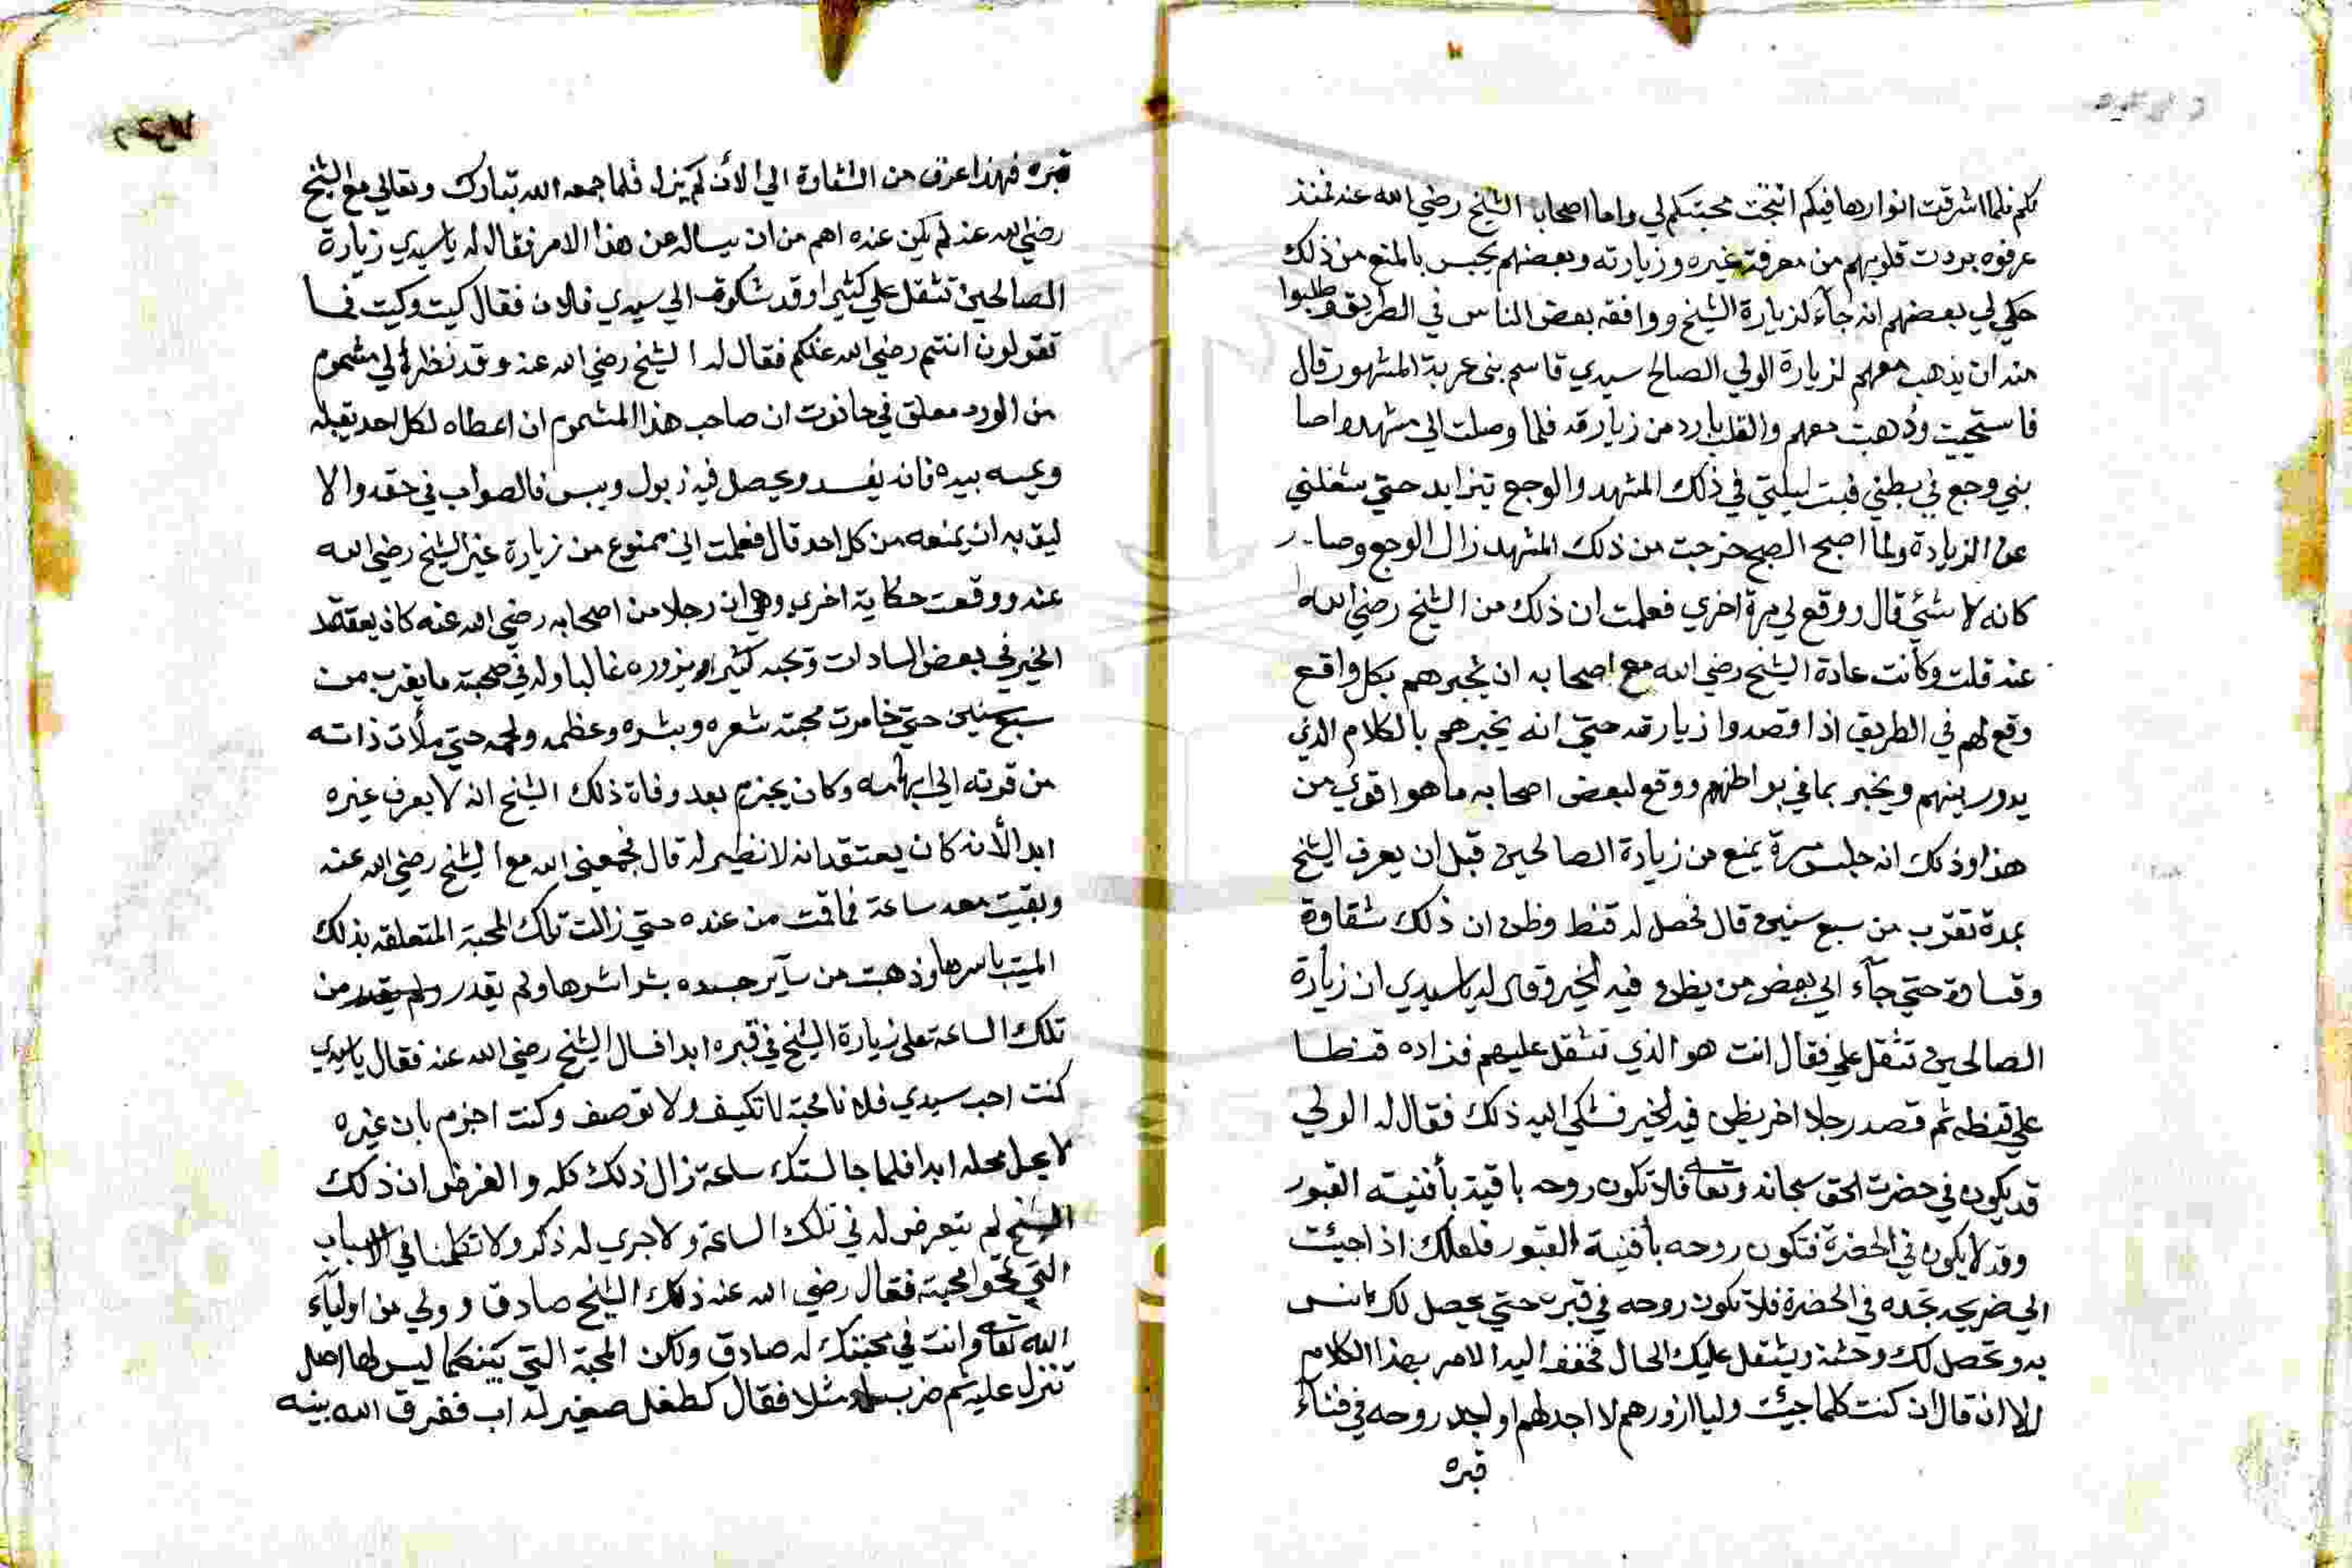 لكم فلما اشرقت انوارها فيكم انتجت محبتكم لي واما اصحاب الشيخ رضي الله عنه فمنذ
عرفوه بردت قلوبهم من معرفة غيره وزيارته وبعضهم يحبس بالمنع من ذلك
حكي لي بعضهم انه جآء لزيارة الشيخ ووافقه بعض الناس في الطريق وطلبوا
منه ان يذهب معهم لزيارة الولي الصالح سيدي قاسم بني عربة المشهور قال
فاستحييت وذهبت معهم والقلب بارد من زيارته فلما وصلت الي مشهده اصا
بني وجع في بطني فبت ليلتي في ذلك المشهد والوجع يتزايد حتي شغلني
عن الزيارة ولما اصبح الصبح خرجت من ذلك المشهد زال الوجع وصار
كانه لا شئي قال ووقع لي مرة اخري فعلمت ان ذلك من الشيخ رضي الله
عنه قلت وكانت عادة الشيخ رضي الله مع اصحابه ان يخبرهم بكل واقع
وقع لهم في الطريق اذا قصدوا زيارته حتي انه يخبرهم بالكلام الذي
يدور بينهم ويخبر بما في بواطنهم ووقع لبعض اصحابه ما هو اقوي من
هذا وذلك انه جلس مرة يمنع من زيارة الصالحين قبل ان يعرف الشيخ
بمدة تقرب من سبع سنين قال فحصل له قنط وظن ان ذلك شقاوة
وقساوة حتي جآء الي بعض من يظن فيه الخير وقال له يا سيدي ان زيارة
الصالحين تثقل علي فقال انت هو الذي تثقل عليهم فزاده قنطا
علي قنطه ثم قصد رجلا اخر يظن فيه الخير فشكي اليه ذلك فقال له الولي
قد يكون في حضرت الحق سبحانه وتعالي فلا تكون روحه باقية بأفنية القبور
وقد لا يكون في الحضرة فتكون روحه بأفنية القبور فلعلك اذا جيئت
الي ضريحه تجده في الحضرة فلا تكون روحه في قبره حتي يحصل لك انس
به وتحصل لك وحشة ويثقل عليك الحال فخفف اليه الامر بهذا الكلام
الا ان قال ان كنت كلما جيئت وليا ازورهم لا اجد لهم اولجد روحه في فنآء
قبره
قبره فهذا عزف من الشقاوة الي الأن لم يزل فلما جمعه الله تبارك وتعالي مع الشيخ
رضي الله عنه لم يكن عنده اهم من ان يساله عن هذا الامر فقال له يا سيدي زيارة
الصالحين تثقل علي كثيرا وقد شكوت الي سيدي فلان فقال كيت وكيت فما
تقولون انتم رضي الله عنكم فقال له الشيخ رضي الله عنه وقد نظر الي مشموم
من الورد معلق في حانوت ان صاحب هذا المشموم ان اعطاه لكل احد يقبله
ويمسه بيده فانه يفسد ويحصل فيه زبول ويبس فالصواب في حقه والا
ليق به ان يمنعه من كل احد قال فعلمت اني ممنوع من زيارة غير الشيخ رضي الله
عنه ووقعت حكاية اخري وهي ان رجلا من اصحابه رضي الله عنه كان يعتقد
الخير في بعض السادات وتحبه كثيرا ويزوره غالبا وله في صحبته ما يقرب من
سبع سنين حتي خامرت محبته شعره وبشره وعظمه ولحمه حتي ملأت ذاته
من قرنه الي ابهامه وكان يجزم بعد وفاة ذلك الشيخ انه لا يعرف غيره
ابد الأنه كان يعتقد انه لا نظير له قال فجمعني الله مع الشيخ رضي الله عنه
وبقيت معه ساعة فما قمت من عنده حتي زالت تلك المحبة المتعلقه بذلك
الميت باسرها وذهبت من سآير جسده بشراشرها ولم يقدر من
تلك الساعة علي زيارة الشيخ في قبره ابدا فسال الشيخ رضي الله عنه فقال يا سيدي
كنت احب سيدي فلانا محبة لا تكيف ولا توصف وكنت اجزم بان غيره
لا يحل محله ابدا فلما جالستك ساعة زال ذلك كله والغرض ان ذلك
الشيخ لم يتعرض له في تلك الساعة ولا جري له ذكر ولا تكلمنا في الاسباب
التي تمحوا محبته فقال رضي الله عنه ذلك الشيخ صادق وولي من اوليآء
الله تعالي وانت في محبتك له صادق ولكن المحبة التي بينكما ليس لها اصل
تنزل عليه ثم ضرب له مثلا فقال كطفل صغير له اب ففرق الله بينه